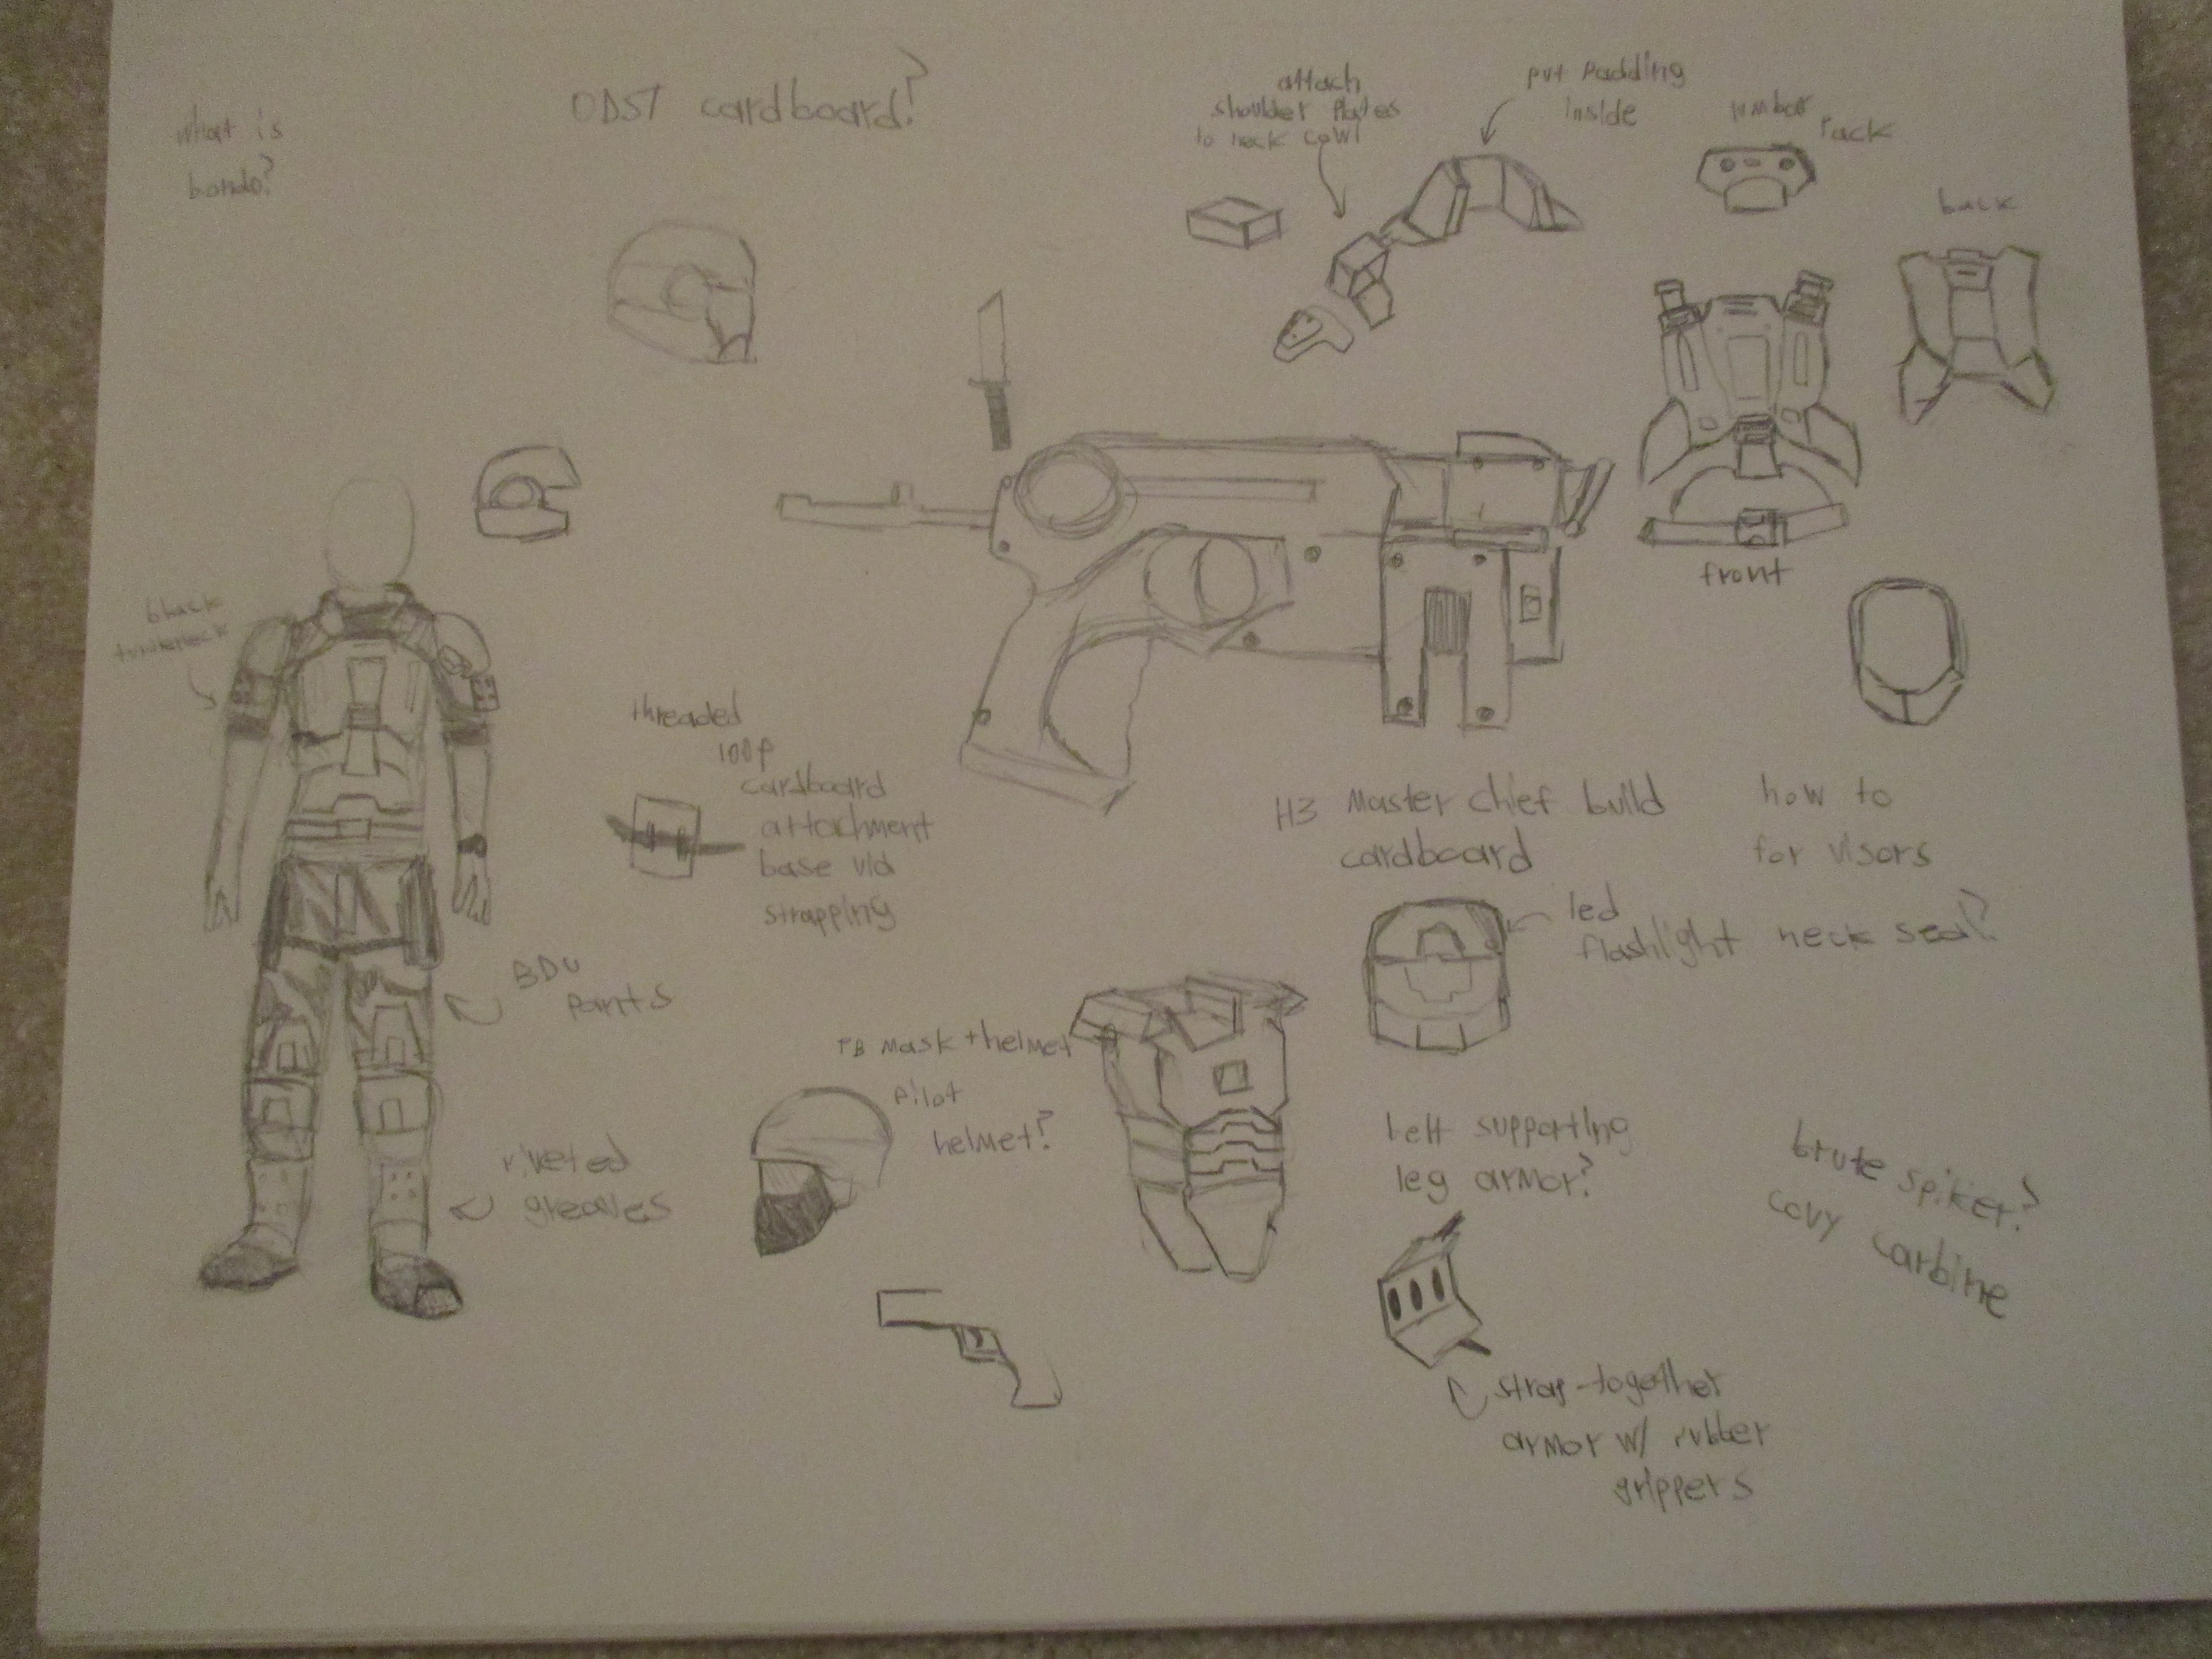 what is
bondo?
ODST cardboard?
attach
shoulder plates
to neck cowl
put padding
inside
lumbar
Pack
back
front
black
turtleneck
threaded
loop
cardboard
attachment
base v/d
strapping
BDU
Pants
riveted
greaves
H3 Master chief build
cardboard
how to
for visors
led
flashlight
neck seal?
mask + helmet
pilot
helmet?
belt supporting
leg armor?
brute spiker?
covy carbine
strap-together
armor w/ rubber
grippers